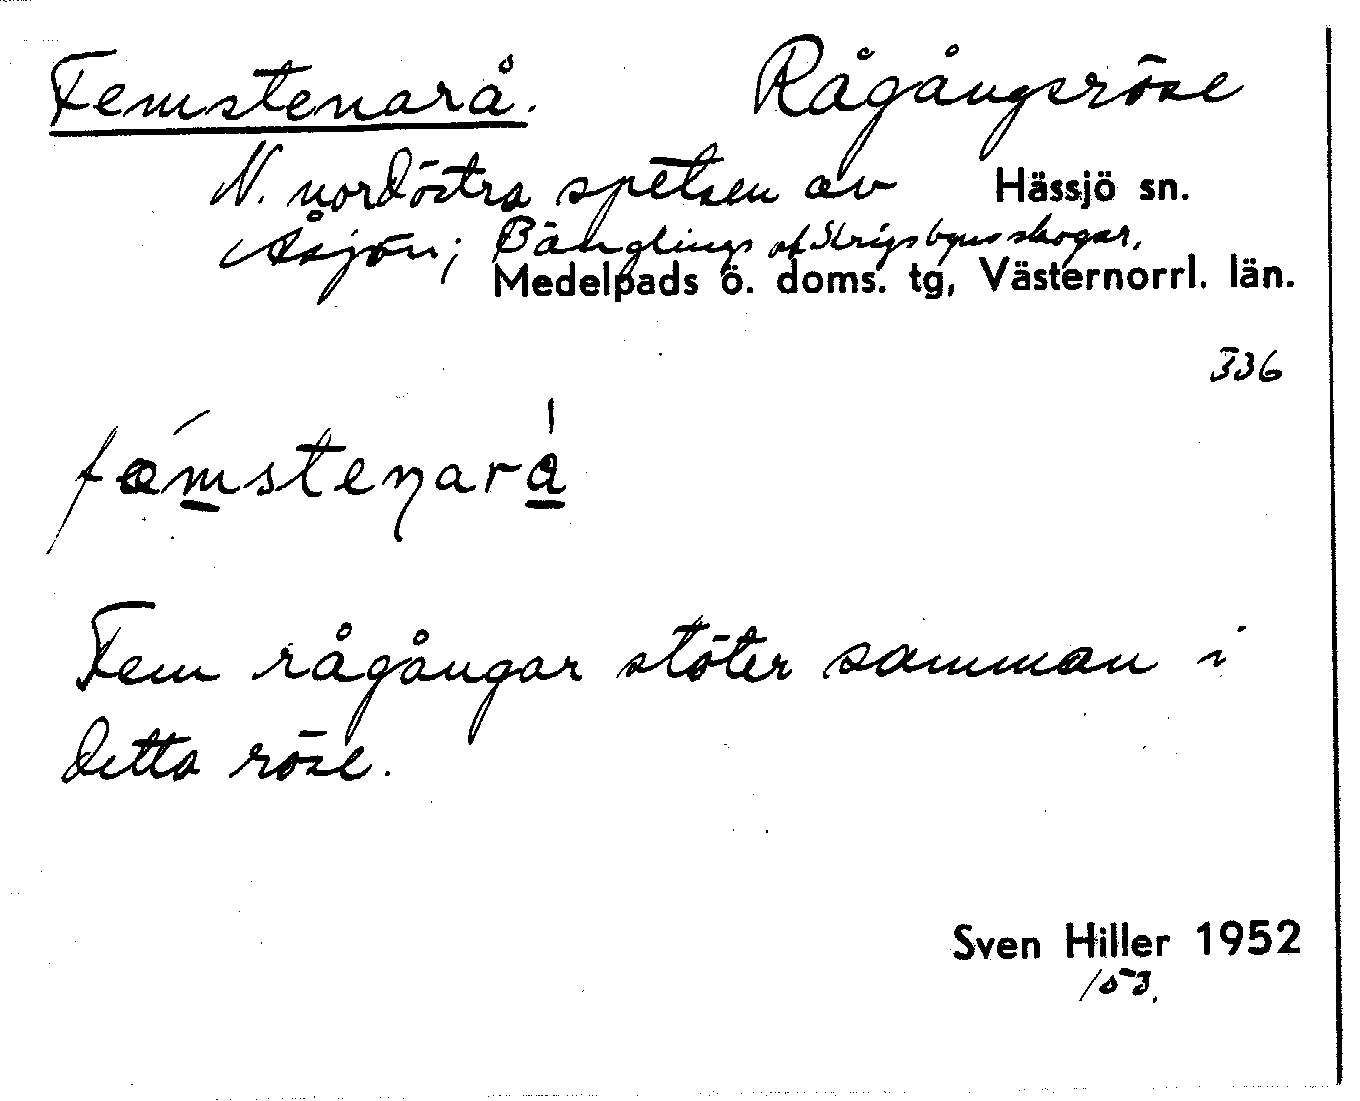 Femstenarå. Rågångsröse
N. nordöstra spetsen av Hässjö sn.
Åsjön; Bänglings o/ Skrigsbyns skogar,
Medelpads ö. doms. tg, Västernorrl. län.
336
fæmstenarå
Fem rågångar stöter samman i
detta röse.
Sven Hiller 1952
/53.